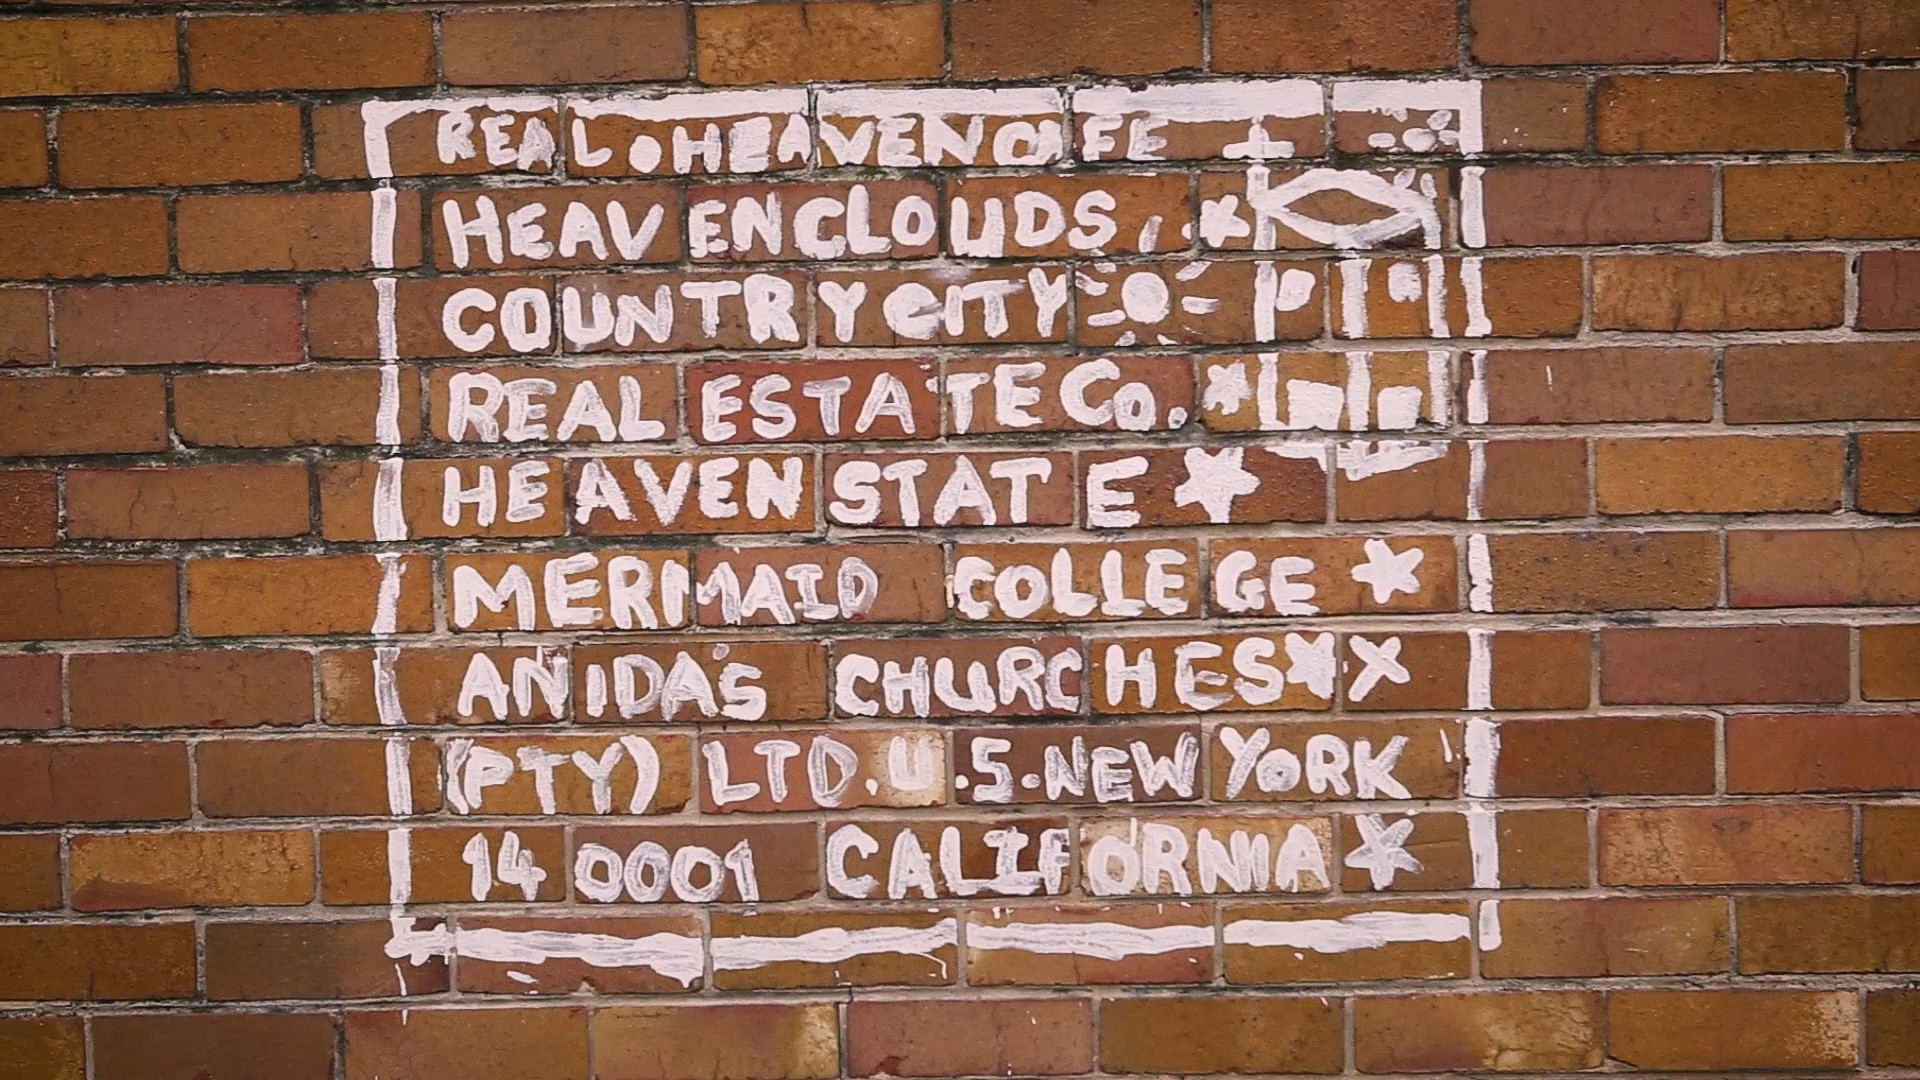 REAL.HEAVENCAFE
HEAVENCLOUDS,.
COUNTRYCITY
REAL ESTATE Co.
HEAVEN STATE
MERMAID COLLEGE
ANIDA'S CHURCHES
(PTY) LTD.U.S.NEW YORK
14 0001 CALIFORNIA